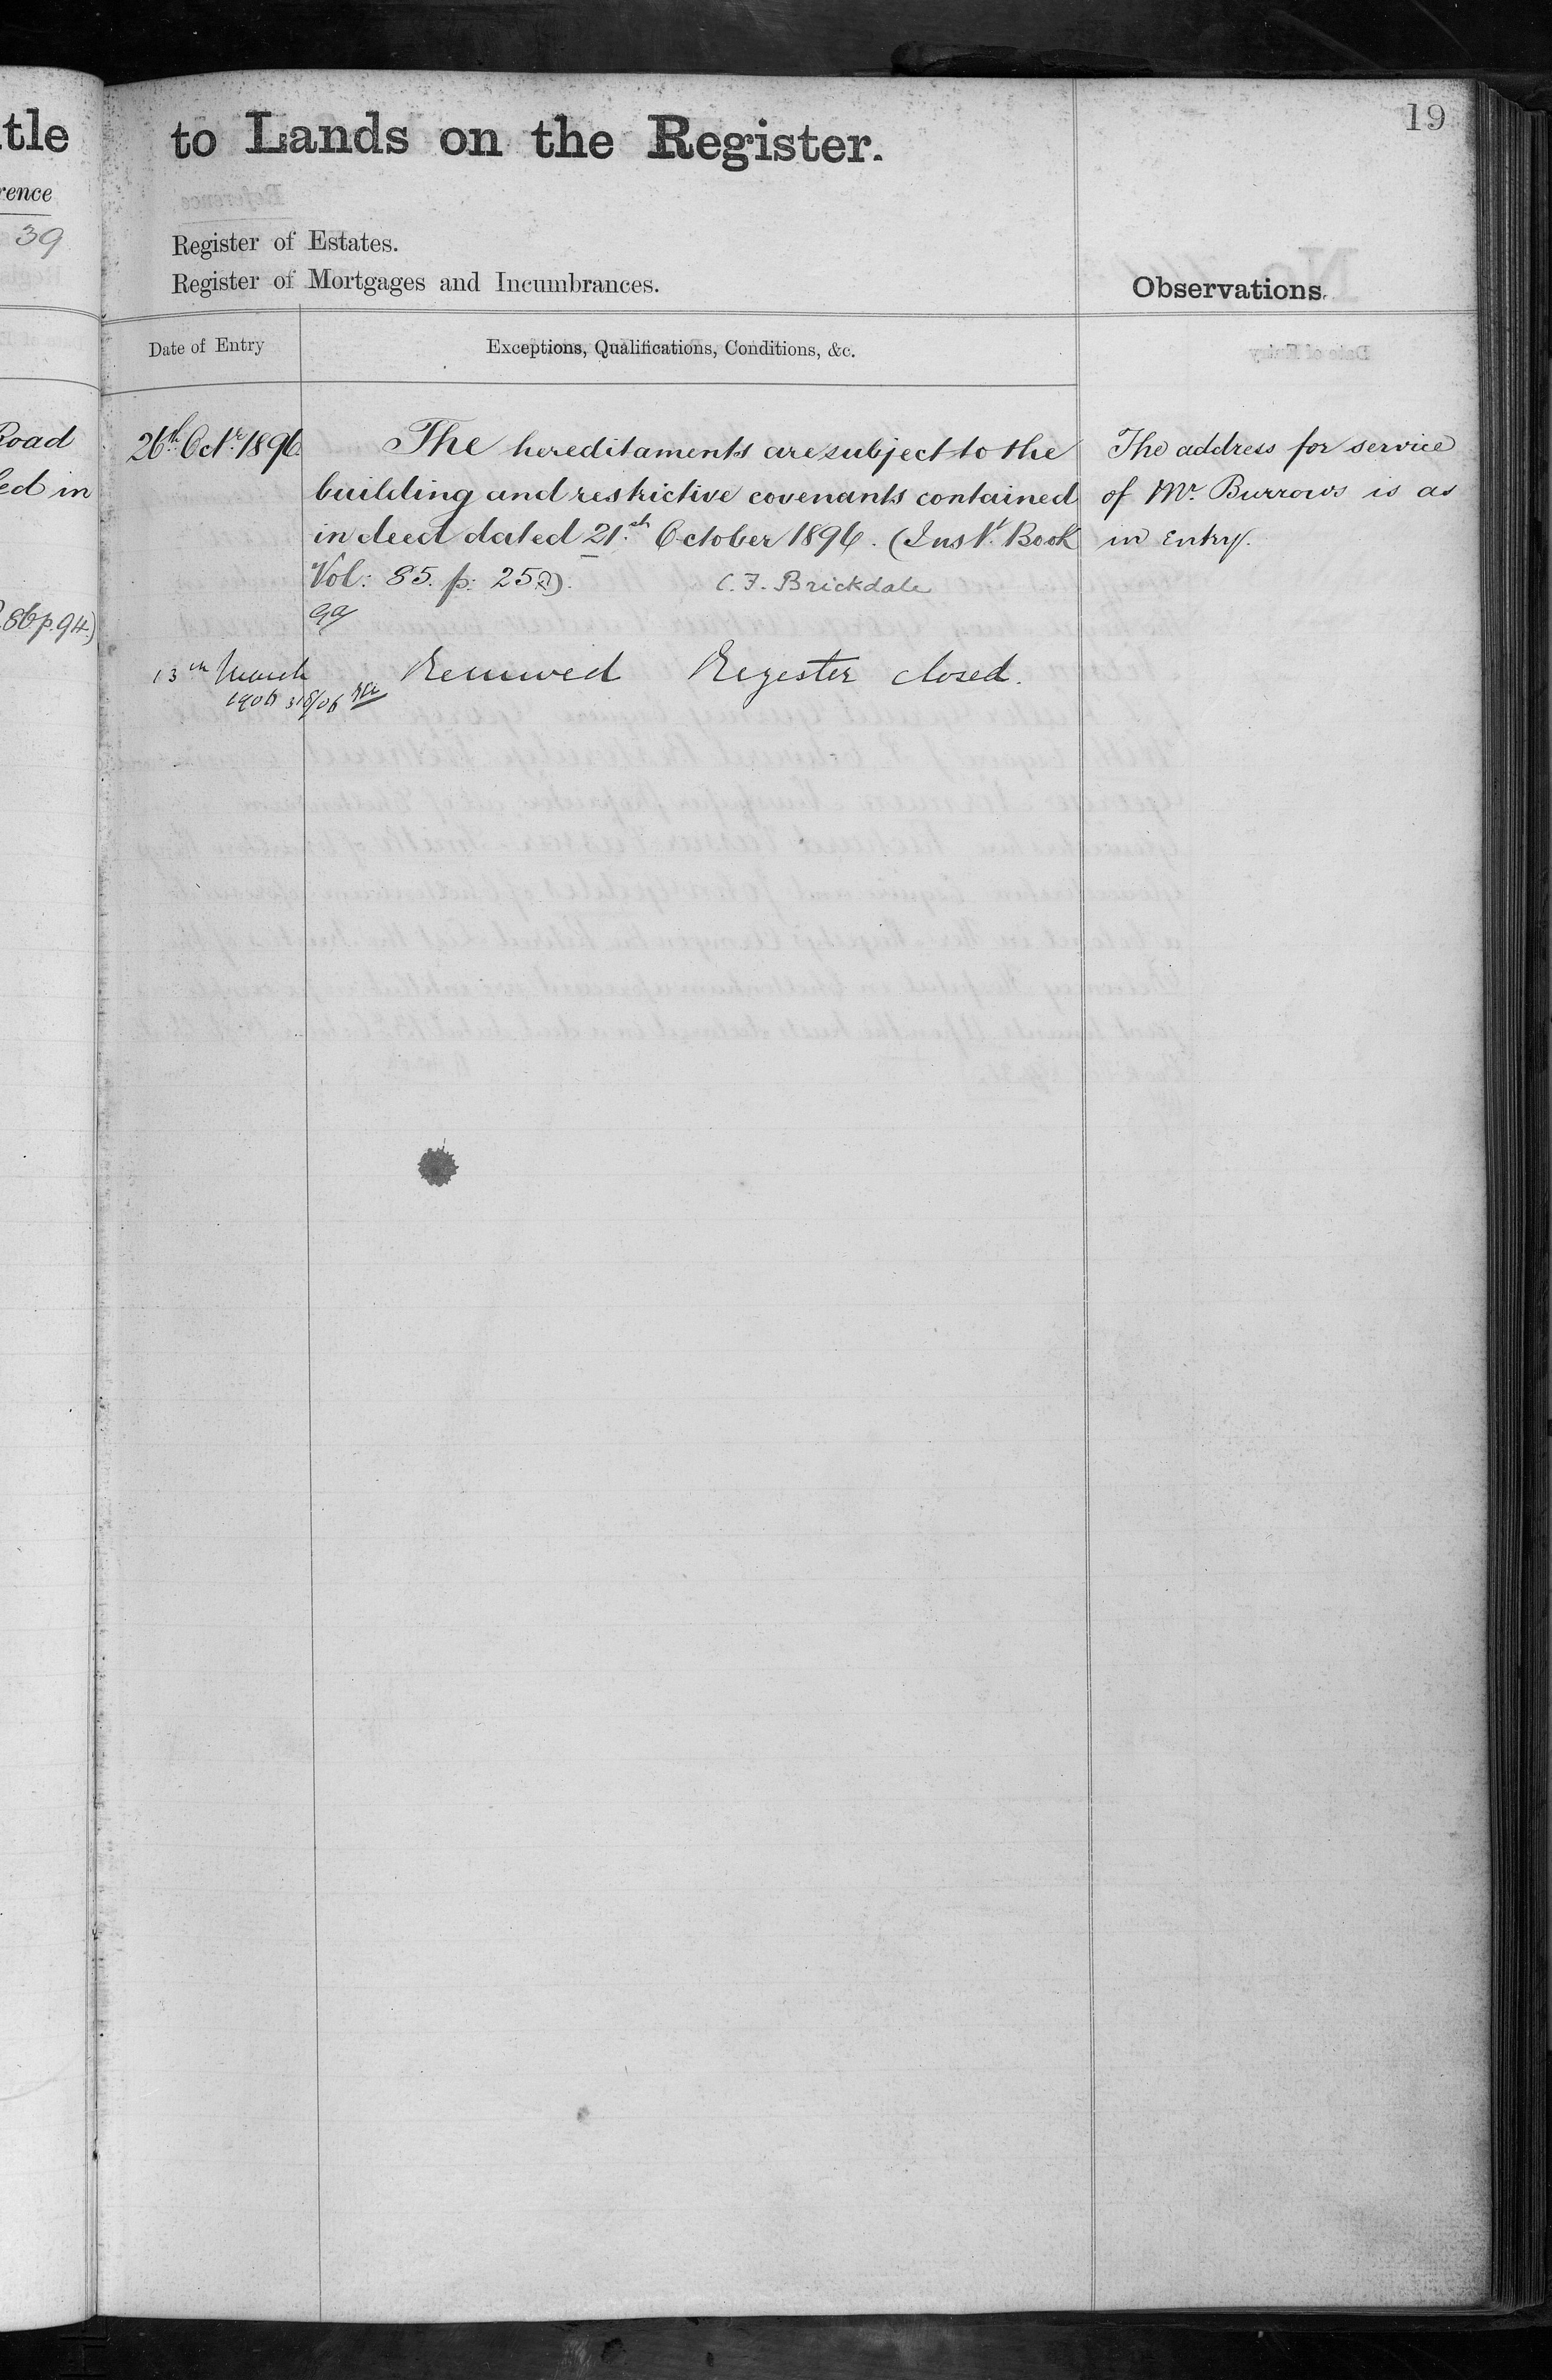 tle
rence
39
Road
ed in
86 p. 94.)
19
to Lands on the Register.
Register of Estates.
Register of Mortgages and Incumbrances.
Observations.
Date of Entry
Exceptions, Qualifications, Conditions, &c.
26th Octr. 1896
The hereditaments are subject to the
building and restrictive covenants contained
in deed dated 21st October 1896. (Inst. Book
Vol: 85. p: 252).
C. F. Brickdale
The address for service
of Mr. Burrows is as
in Entry.
13th March
1906
Removed Register closed.